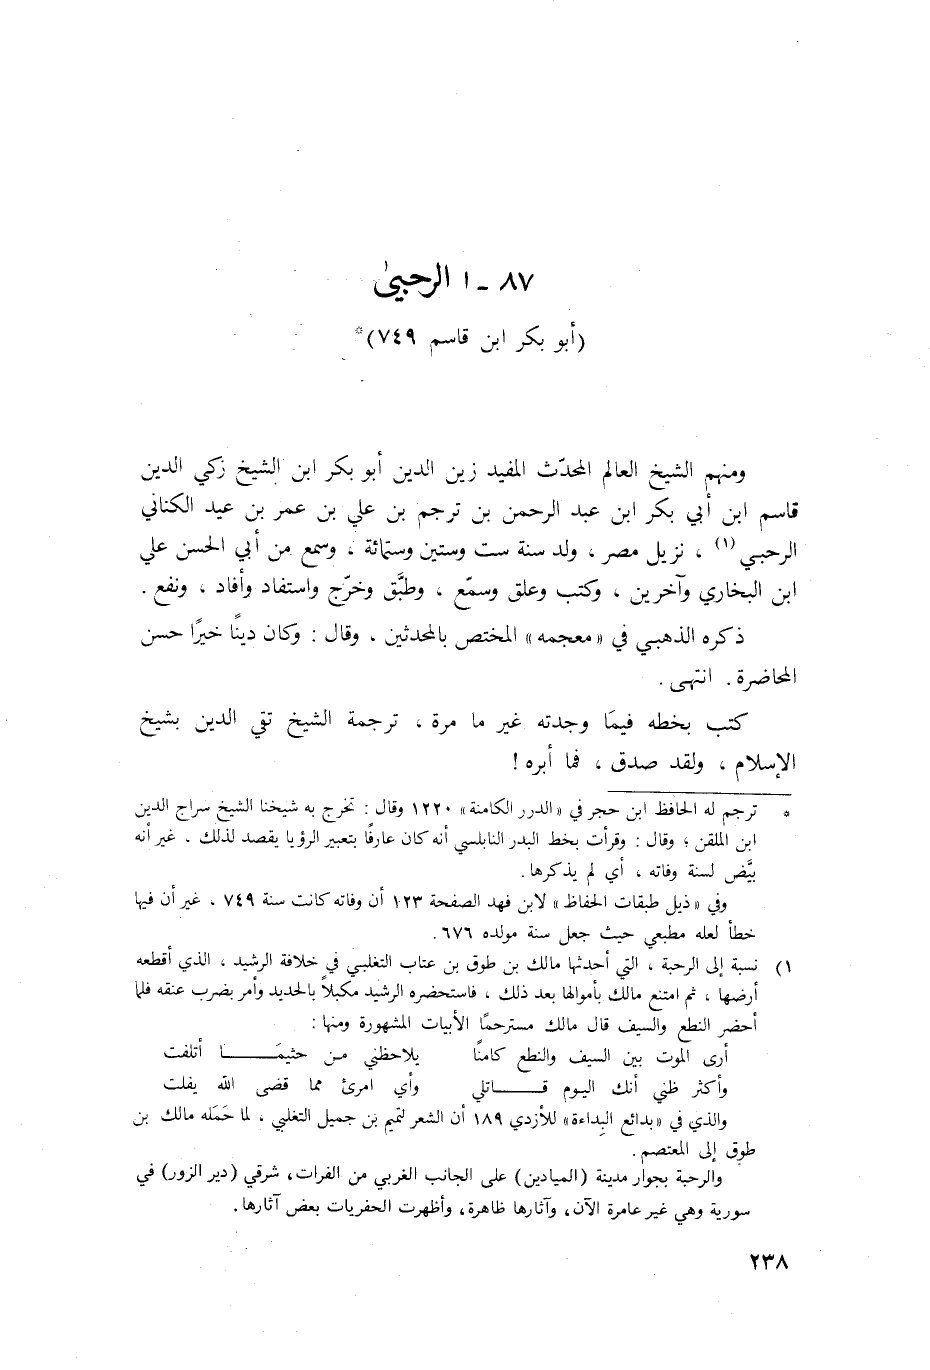 ٨٧ ـ ا الرحبيّ
(أبو بكر ابن قاسم ٧٤٩)*
ومنهم الشيخ العالم المحدّث المفيد زين الدين أبو بكر ابن الشيخ زكي الدين
قاسم ابن أبي بكر ابن عبد الرحمن بن ترجم بن علي بن عمر بن عيد الكناني
الرحبي (١) ، نزيل مصر ، ولد سنة ست وستين وستمائة ، وسمع من أبي الحسن علي
ابن البخاري وآخرين ، وكتب وعلق وسمّع ، وطبَّق وخرّج واستفاد وأفاد ، ونفع .
ذكره الذهبي في « معجمه » المختص بالمحدثين . وقال : وكان دينًا خيرًا حسن
المحاضرة . انتهى .
كتب بخطه فيمَا وجدته غير ما مرة ، ترجمة الشيخ تقي الدين بشيخ
الإسلام ، ولقد صدق ، فما أبره !
* ترجم له الحافظ ابن حجر في « الدرر الكامنة » ١٢٢٠ وقال : تخرج به شيخنا الشيخ سراج الدين
ابن الملقن ؛ وقال : وقرأت بخط البدر النابلسي أنه كان عارفًا بتعبير الرؤيا يقصد لذلك . غير أنه
بيَّض لسنة وفاته ، أي لم يذكرها .
وفي « ذيل طبقات الحفاظ » لابن فهد الصفحة ١٢٣ أن وفاته كانت سنة ٧٤٩ ، غير أن فيها
خطأ لعله مطبعي حيث جعل سنة مولده ٦٧٦ .
١) نسبة إلى الرحبة ، التي أحدثها مالك بن طوق بن عتاب التغلبي في خلافة الرشيد ، الذي أقطعه
أرضها ، ثم امتنع مالك بأموالها بعد ذلك ، فاستحضره الرشيد مكبلاً بالحديد وأمر بضرب عنقه فلما
أحضر النطع والسيف قال مالك مسترحمًا الأبيات المشهورة ومنها :
أرى الموت بين السيف والنطع كامنًا يلاحظني من حثيمَـــا أتلفت
وأكثر ظني أنك اليوم قـــاتلي وأي امرئ مما قضى الله يفلت
والذي في « بدائع البِداءة » للأزدي ١٨٩ أن الشعر لتميم بن جميل التغلبي ، لما حَمَله مالك بن
طوق إلى المعتصم .
والرحبة بجوار مدينة (الميادين) على الجانب الغربي من الفرات، شرقي (دير الزور) في
سورية وهي غير عامرة الآن، وآثارها ظاهرة، وأظهرت الحفريات بعض آثارها .
٢٣٨